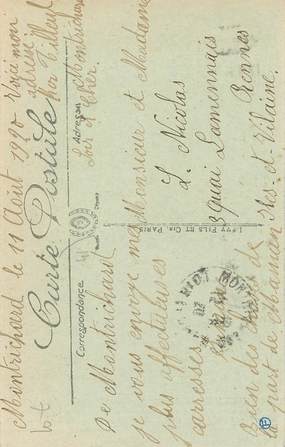 Montrichard le 11 Août 1920 Voici mon
adresse
Montrichard
Loir et Cher
Carte Postale
Correspondance
Adresse
LEVY FILS ET Cie PARIS
De Montrichard
je vous envoye mes
plus affectueuses
caresses
Bien des
la part de Maman
Monsieur et Madame
L. Nicolas
3 quai Lamennais
Rennes
Ille-et-Vilaine